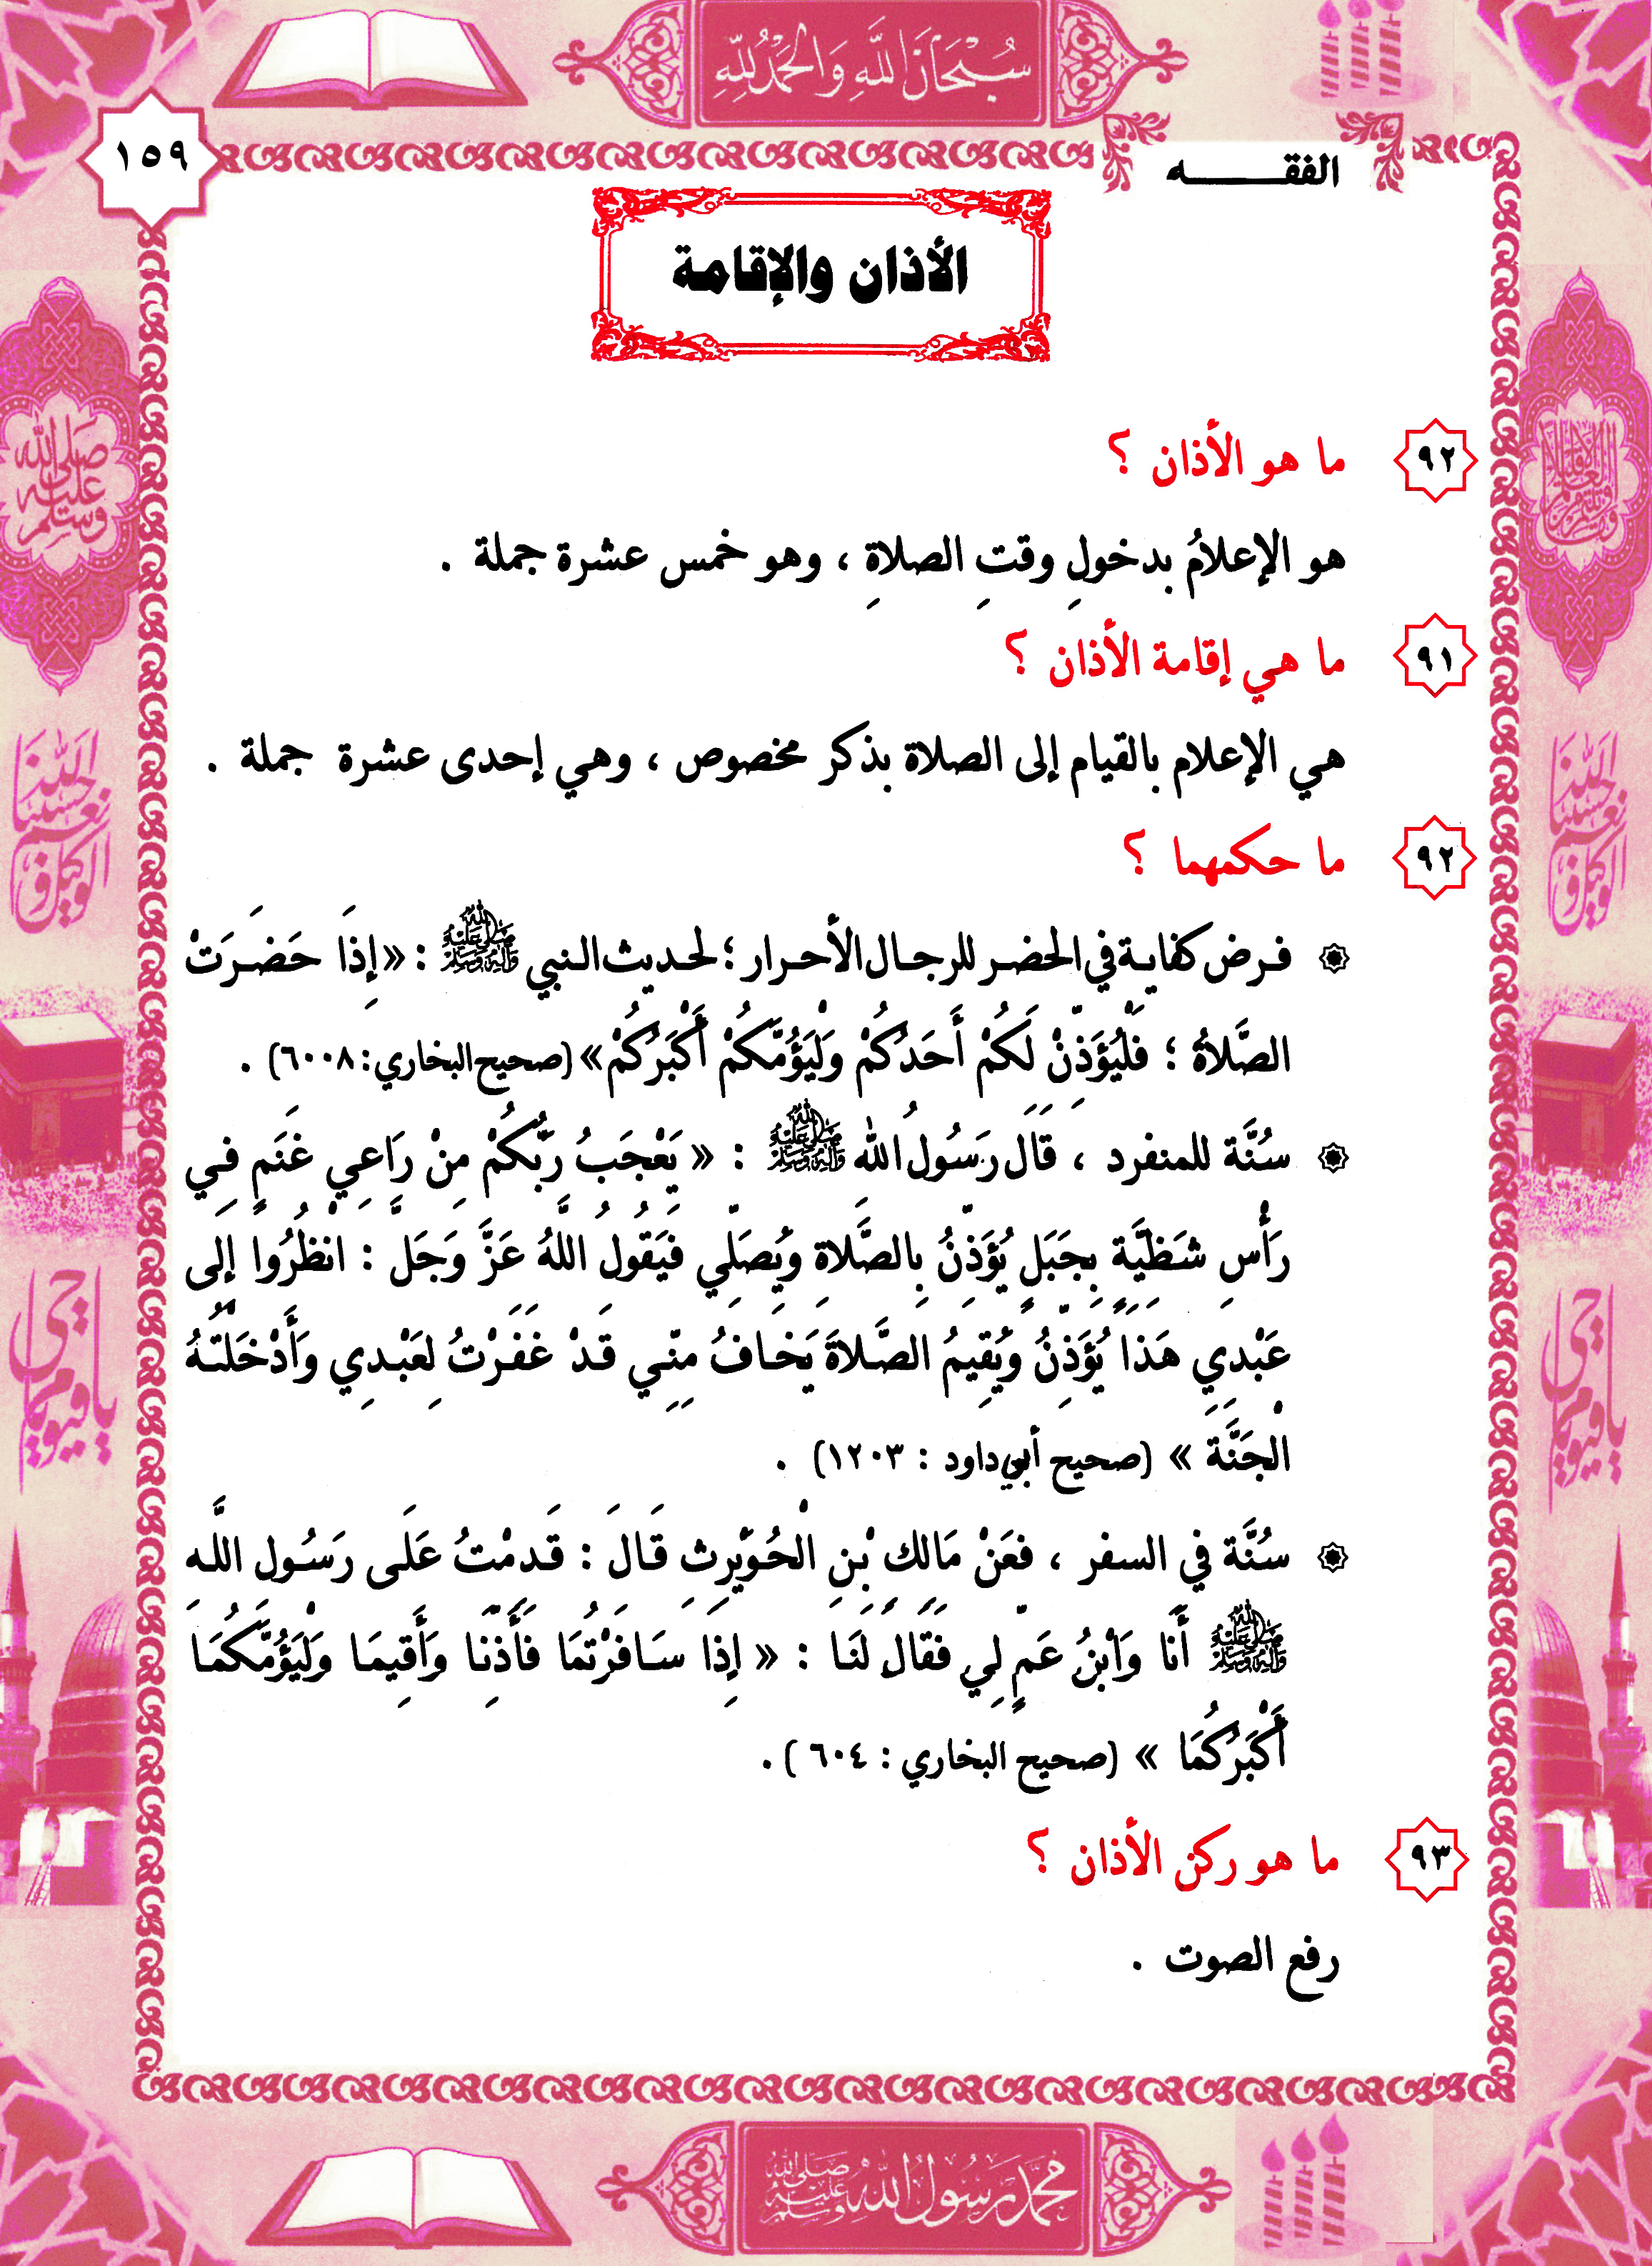 سُبْحَانَ اللَّهِ وَالْحَمْدُ لِلَّهِ
الفقـــــــه
١٥٩
الأذان والإقامة
٩٢ ما هو الأذان ؟
هو الإعلامُ بدخولِ وقتِ الصلاةِ ، وهو خمس عشرة جملة .
٩١ ما هي إقامة الأذان ؟
هي الإعلام بالقيام إلى الصلاة بذكر مخصوص ، وهي إحدى عشرة جملة .
٩٢ ما حكمهما ؟
فـرض كفايـة في الحضـر للرجـال الأحـرار ؛ لحـديث النبي ﷺ : «إِذَا حَضَـرَتْ
الصَّلاةُ ؛ فَلْيُؤَذِّنْ لَكُمْ أَحَدُكُمْ وَلْيَؤُمَّكُمْ أَكْبَرُكُمْ» (صحيح البخاري: ٦٠٠٨) .
سُنَّة للمنفرد ، قَالَ رَسُولُ الله ﷺ : « يَعْجَبُ رَبُّكُمْ مِنْ رَاعِي غَنَمٍ فِي
رَأْسِ شَظِيَّةٍ بِجَبَلٍ يُؤَذِّنُ بِالصَّلاةِ وَيُصَلِّي فَيَقُولُ اللَّهُ عَزَّ وَجَلَّ : انْظُرُوا إِلَى
عَبْدِي هَذَا يُؤَذِّنُ وَيُقِيمُ الصَّلاةَ يَخَافُ مِنِّي قَدْ غَفَرْتُ لِعَبْدِي وَأَدْخَلْتُهُ
الْجَنَّةَ » (صحيح أبي داود : ١٢٠٣) .
سُنَّة في السفر ، فعَنْ مَالِكِ بْنِ الْحُوَيْرِثِ قَالَ : قَدِمْتُ عَلَى رَسُولِ اللَّهِ
ﷺ أَنَا وَابْنُ عَمٍّ لِي فَقَالَ لَنَا : « إِذَا سَافَرْتُمَا فَأَذِّنَا وَأَقِيمَا وَلْيَؤُمَّكُمَا
أَكْبَرُكُمَا » (صحيح البخاري : ٦٠٤ ) .
٩٣ ما هو ركن الأذان ؟
رفع الصوت .
مُحَمَّد رَسُولُ اللَّه ﷺ